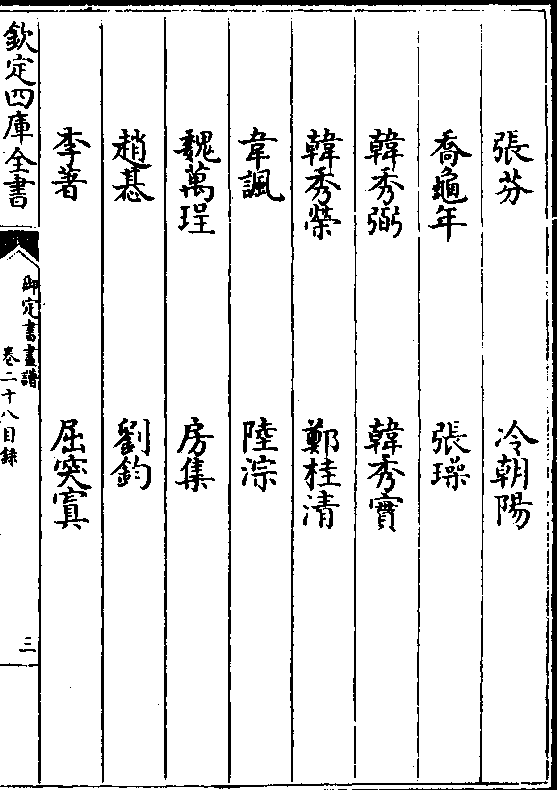 張芬　冷朝陽
喬龜年　張璪
韓秀弼　韓秀實
韓秀榮　鄭桂清
韋諷　陸淙
魏萬珵　房集
趙惎　劉鈞
李著　屈突寘
欽定四庫全書
御定書畫譜
卷二十八目錄
三